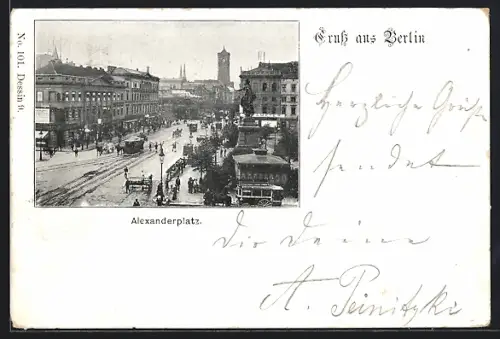 No. 101. Dessin 9.
Gruß aus Berlin
Alexanderplatz.
Herzliche Grüße
sendet
Dir Deine
A.